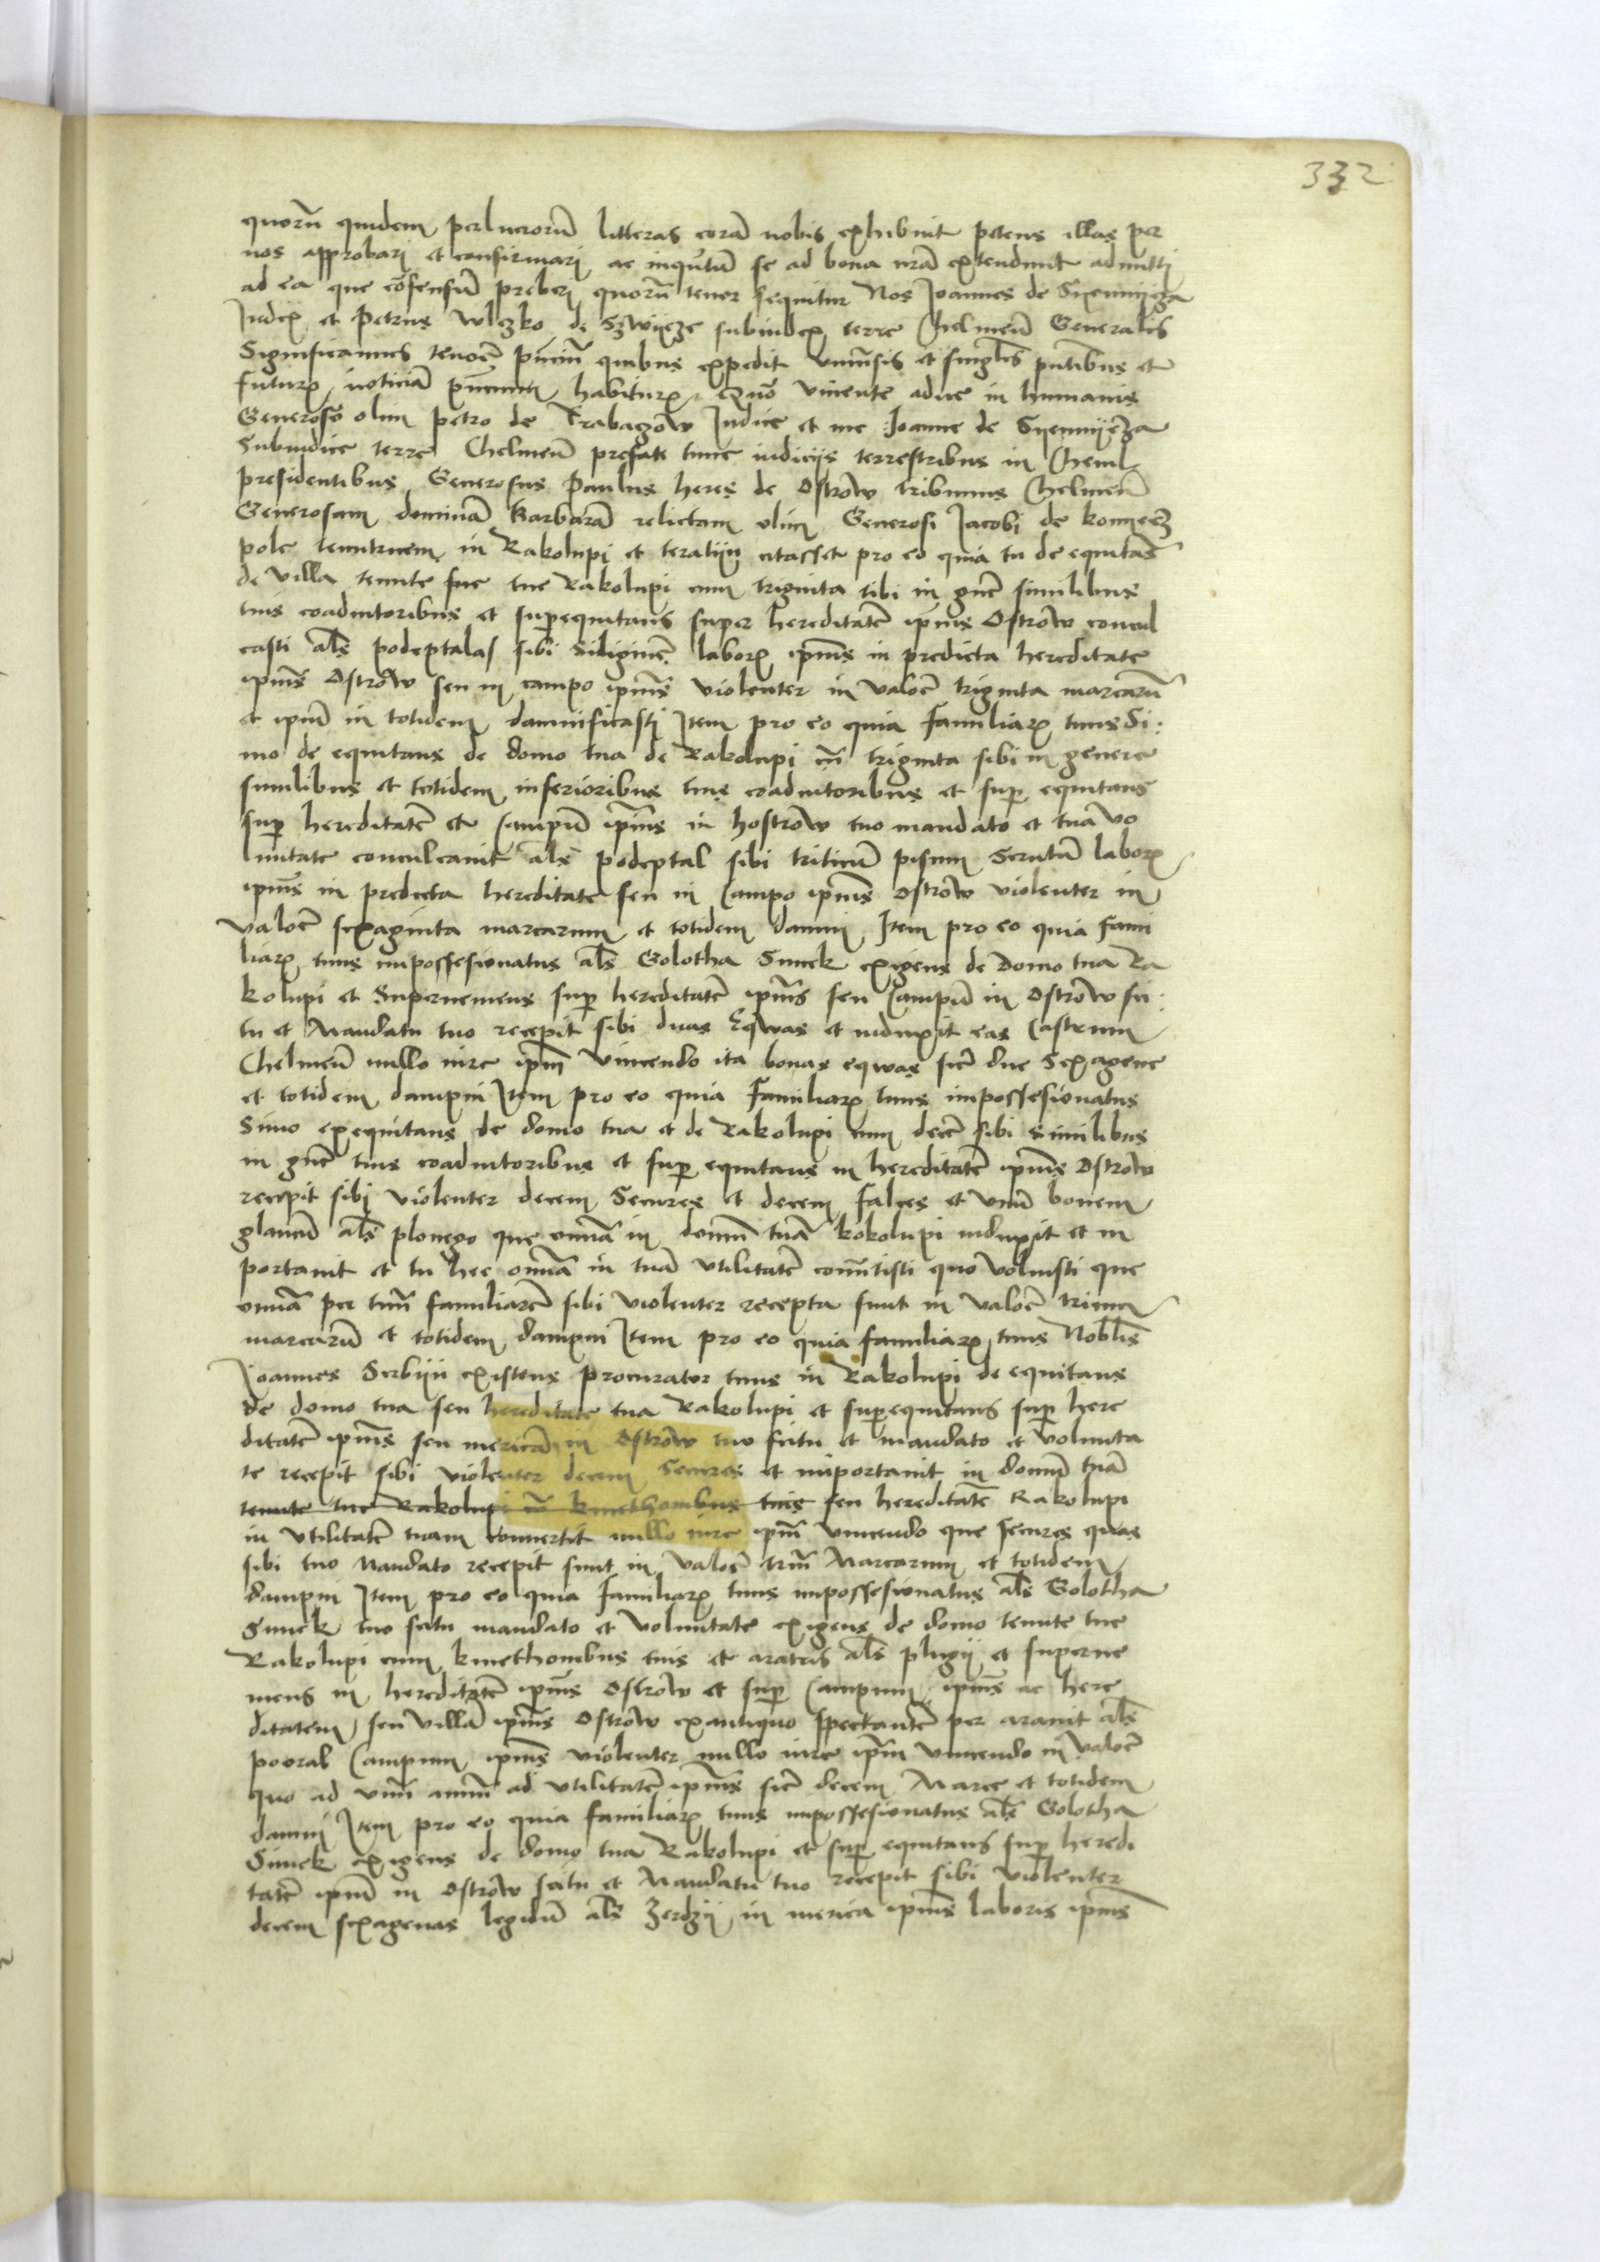 332
quorũ quidem perlucrorũ litteras corã nobis exhibuit petens illas per
nos approbari et confirmari ac inqʒtum se ad bona nrã extendunt admitti
ad ea que cõsensũ preberi quorũ tenor sequitur Nos Joannes de Syennycza
Judex et Petrus Wlczko de Szwijrze subiudex terre Chelmeñ Generalis
Significamus tenore pñciũ quibus expedit vniuersis et singlis pñtibus et
futurꝭ noticiã pñcium habiturꝭ quo viuente aduc in humanis
Generoso olim Petro de Trabaczow Judice et me Joanne de Syennycza
Subiudice terre Chelmeñ prefate tunc iudicijs terrestribus in Cheml
presidentibus Generosus Paulus heres de Ostrow tribunus Chelmeñ
Generosam dominã Barbarã relictam olim Generosi Jacobi de koniecz
pole tenutricem in Rakolupi et teratijn citasset pro eo quia tu de equitãs
de villa tenute sue tue Rakolupi cum triginta tibi in gñe similibus
tuis coadiutoribus et superequitans super hereditatẽ ipius Ostrow concul
casti als podeptalas sibi siliginẽ laborꝭ ipius in predicta hereditate
ipius Ostrow seu in campo ipius violenter in valore triginta marcarũ
et ipm in totidem damnificasti Item pro eo quia familiarꝭ tuus Si:
mo de equitans de domo tua de Rakolupi cũ triginta sibi in genere
similibus et totidem inferioribus tuis coadiutoribus et sup equitans
sup hereditatẽ et campũ ipius in hostrow tuo mandato et tua vo
luntate conculcauit als podeptal sibi triticũ pisum laborꝭ
ipius in predicta hereditate seu in campo ipius Ostrow violenter in
valore sexaginta marcarum et totidem damni Item pro eo quia fami
liarꝭ tuus impossesionatus als Golotha Simek exigens de domo tua Ra
kolupi et Superuemens sup hereditatẽ ipius seu campũ in Ostrow sci:
tu et Mandatu tuo recepit sibi duas Eqwas et induxit eas castrum
Chelmeñ nullo iure ipm vincendo ita bonas eqwas sicut due sexagene
et totidem dampni Item pro eo quia familiarꝭ tuus impossesionatus
Simo exequitans de domo tua et de Rakolupi cum decẽ sibi similibus
in gñe tuis coadiutoribus et sup equitans in hereditatẽ ipius Ostrow
recepit sibi violenter decem Secures et decem falces et vnũ bouem
glaucũ als plowego que omnã in domũ tuã kokolupi induxit et in
portauit et tu hec omnã in tuã vtilitatẽ conuertisti quo voluisti que
omnã per tuũ familiarẽ sibi violenter recepta sunt in valore trium
marcarũ et totidem dampni Item pro eo quia familiarꝭ tuus Nobilis
Joannes Serbijn existens procurator tuus in Rakolupi de equitans
de domo tua seu hereditate tua Rakolupi et superequitans sup here
ditatẽ ipius seu mericam in Ostrow tuo scitu et mandato et volunta
te recepit sibi violenter decem Secures et importauit in domũ tuã
tenute tue Rakolupi cũ kmethonibus tuis seu hereditatẽ Rakolupi
in vtilitatẽ tuam conuertit nullo iure ipm vincendo que secures quas
sibi tuo Mandato recepit sunt in valore triũ Marcarum et totidem
dampni Item pro eo quia familiarꝭ tuus impossesionatus als Golotha
Simek tuo scitu mandato et voluntate exigens de domo tenute tue
Rakolupi cum kmethonibus tuis et aratris als plugij et superue
mens in hereditatẽ ipius Ostrow et sup campum ipius ac here
ditatem seu villã ipius Ostrow exantiquo spectantẽ per arauit als
pooral campum ipius violenter nullo iure ipm vincendo in valore
quo ad vnũ annũ ad vtilitatẽ ipius sicut decem Marce et totidem
damni Item pro eo quia familiarꝭ tuus impossesionatus als Golotha
Simek exigens de domo tua Rakolupi et sup equitans sup heredi
tatẽ ipius in Ostrow scitu et Mandatu tuo recepit sibi violenter
decem sexagenas legidũ als Zerdzij in merica ipius laboris ipius